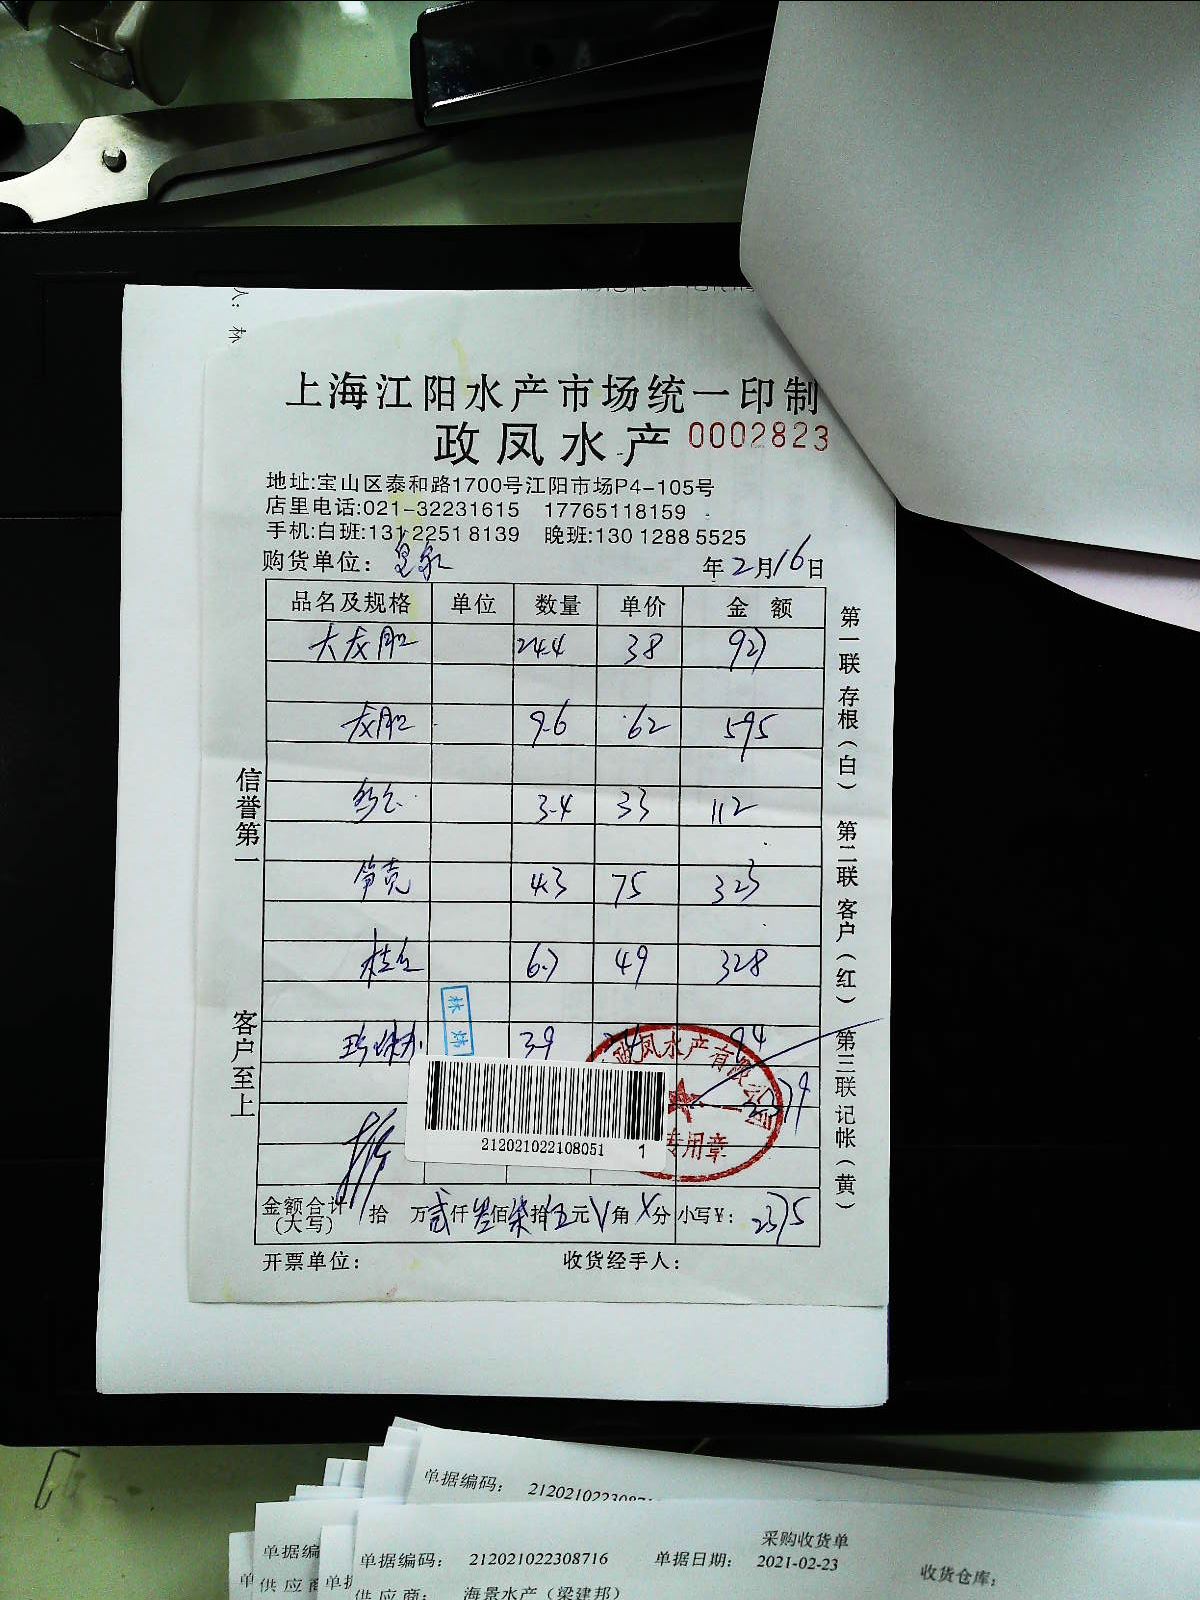 人: 林
上海江阳水产市场统一印制
政凤水产 0002823
地址:宝山区泰和路1700号江阳市场P4-105号
店里电话:021-32231615 17765118159
手机:白班:131 2251 8139 晚班:130 1288 5525
购货单位: 年2月16日
品名及规格 单位 数量 单价 金额
大龙胆 24.4 38 927
龙胆 9.6 62 595
3.4 33 112
笋壳 4.3 75 323
桂鱼 6.7 49 328
珍珠 3.9 24 94
2379
金额合计(大写) 拾 万贰仟叁佰柒拾伍元 角 分 小写¥: 2375
开票单位: 收货经手人:
信誉第一
客户至上
第一联 存根(白) 第二联 客户(红) 第三联 记帐(黄)
政凤水产有限公司
专用章
212021022108051 1
单据编码:
单据编码: 212021022308716
采购收货单
单据日期: 2021-02-23
收货仓库:
供应商
供应商: 海景水产(梁建邦)